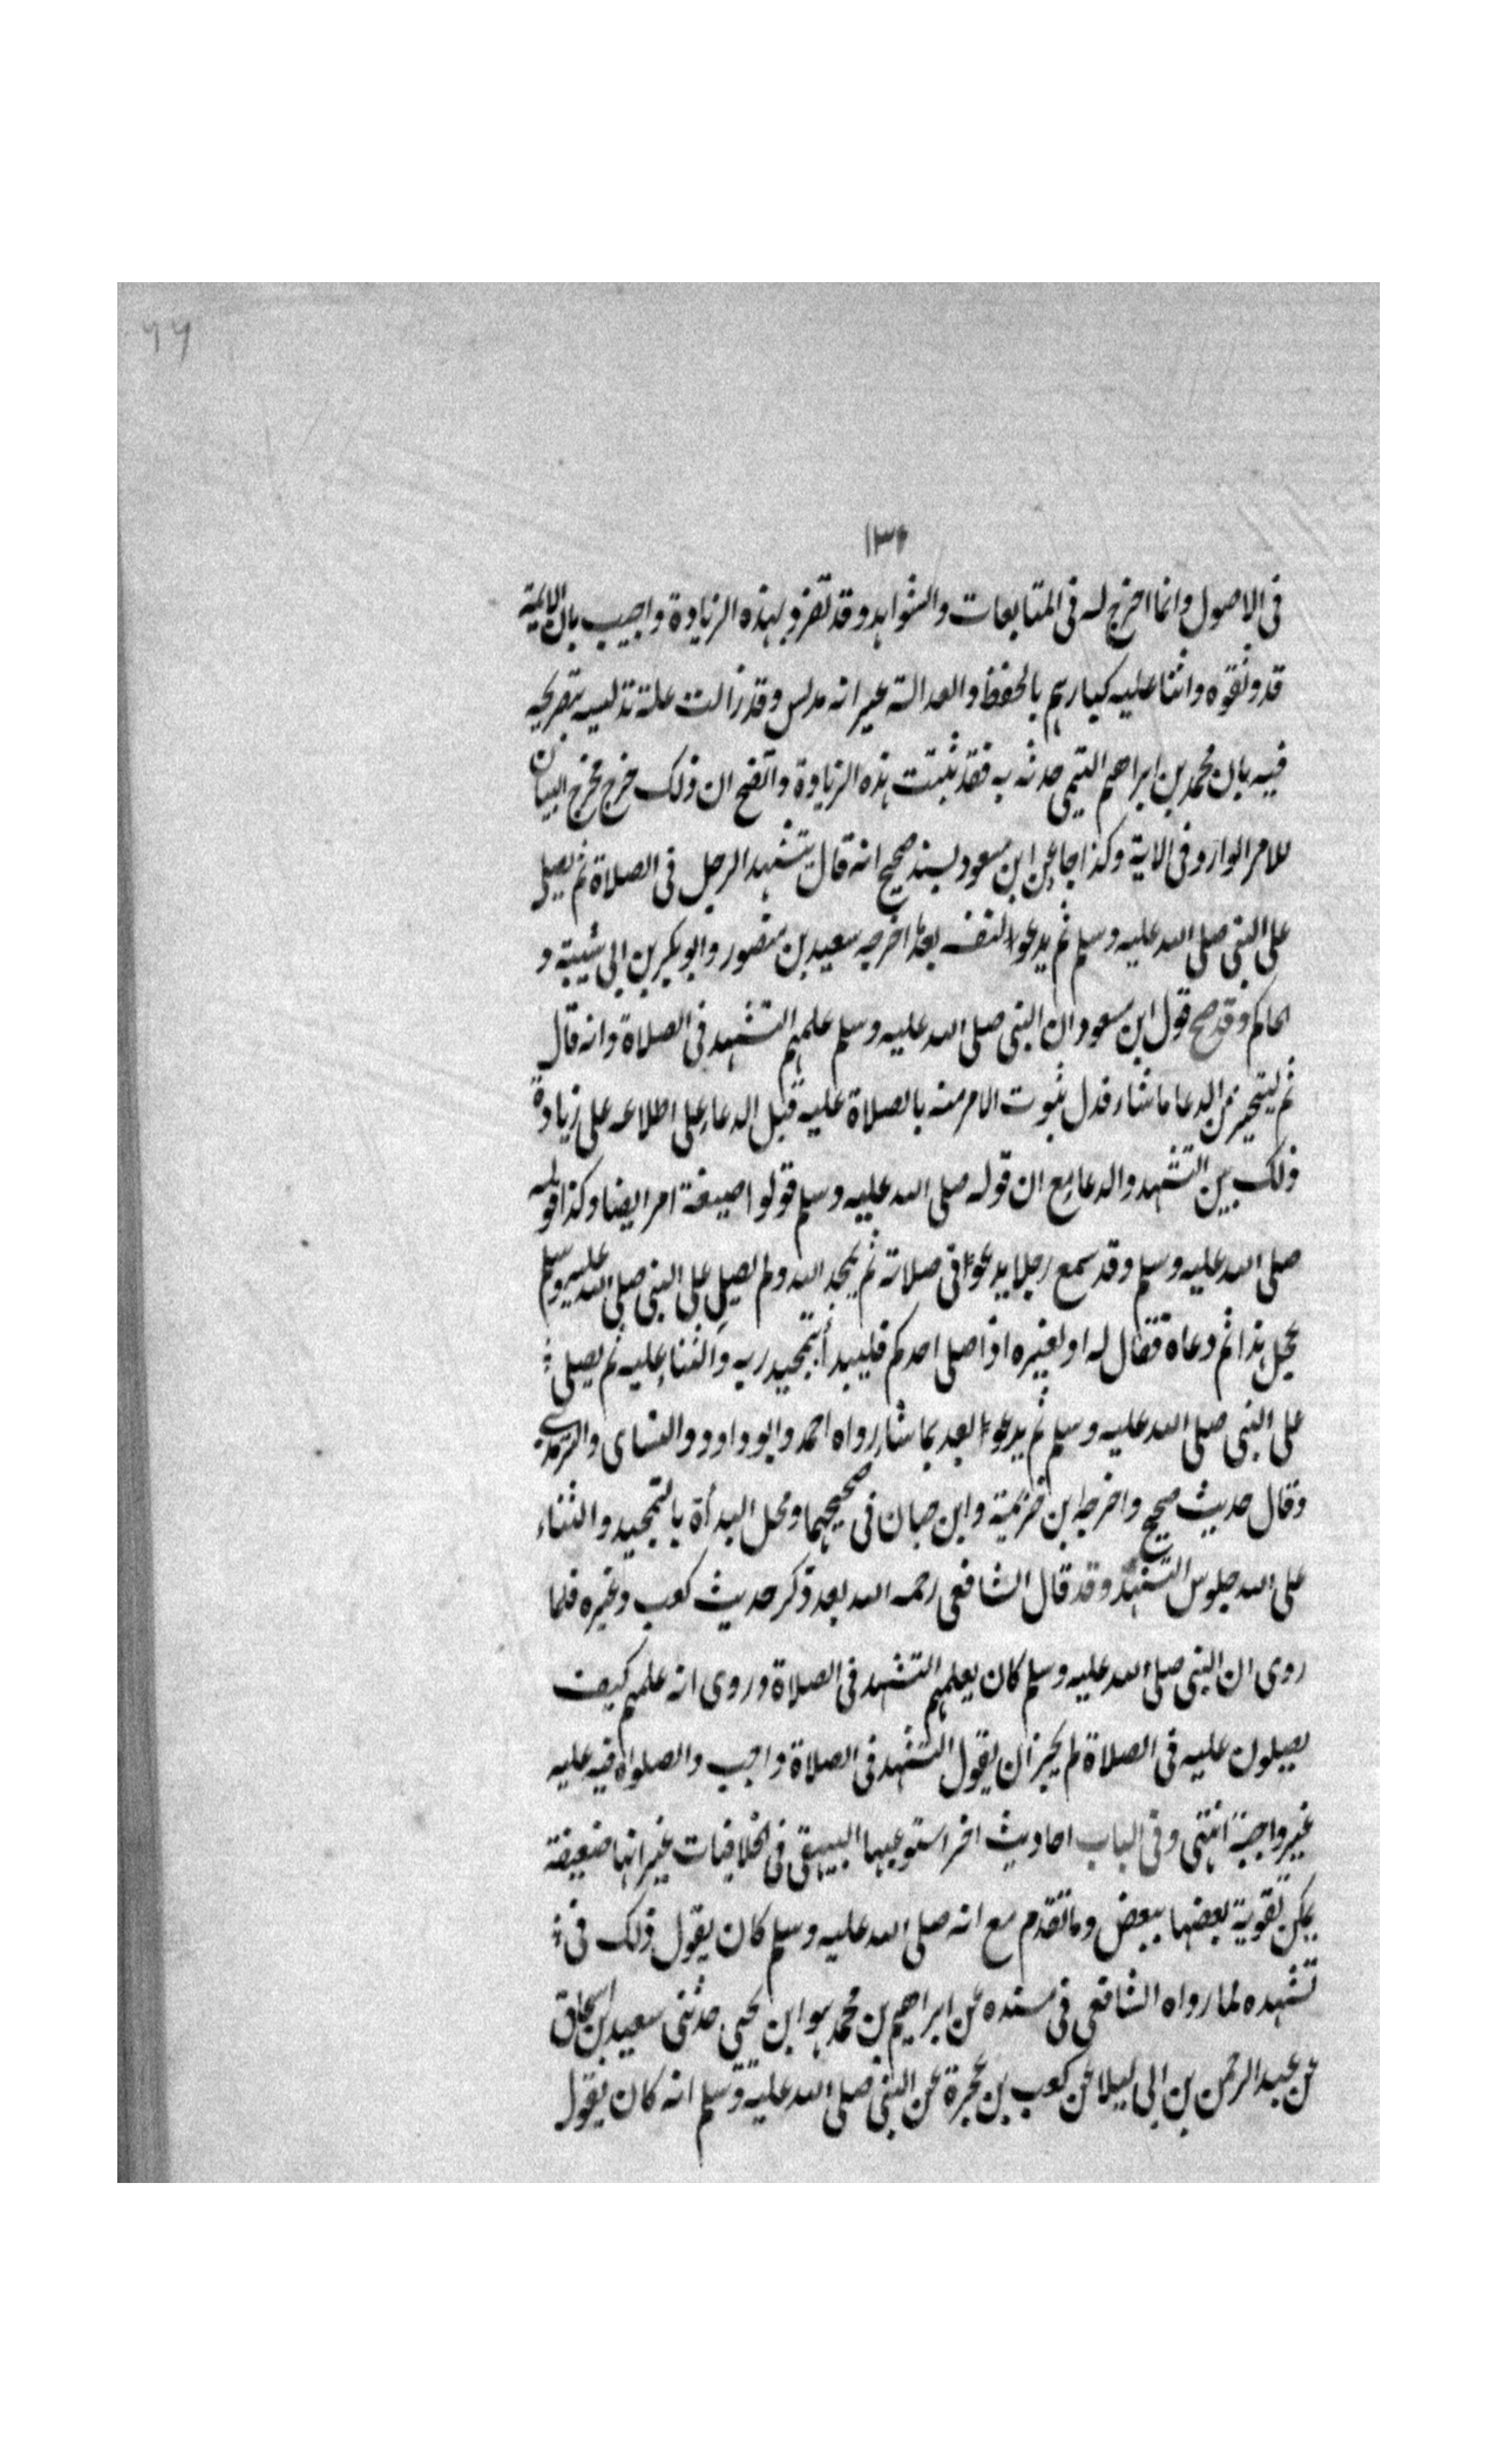 ٦٦
١٣٠
فى الاصول وانما اخرج له فى المتابعات والشواهد وقد تفرد بهذه الزيادة واجيب بان الائمة
قد وثقوه واثنا عليه كبارهم بالحفظ والعدالة غير انه مدلس وقد زالت علة تدليسه بتصريحه
فيه بان محمد بن ابراهيم التيمى حدثه به فقد ثبتت هذه الزيادة واتضح ان ذلك خرج مخرج البيان
للامر الوارد فى الاية وكذا جاء عن ابن مسعود بسند صحيح انه قال يتشهد الرجل فى الصلاة ثم يصلى
على النبى صلى الله عليه وسلم ثم يدعوا لنفسه بعد اخرجه سعيد بن منصور وابو بكر بن ابى شيبة و
الحاكم وقد صح قول ابن مسعود ان النبى صلى الله عليه وسلم علمهم التشهد فى الصلاة وانه قال
ثم ليتخير من الدعا ما شاء فدل ثبوت الامر منه بالصلاة عليه قبل الدعاء على اطلاعه على زيادة
ذلك بين التشهد والدعاء مع ان قوله صلى الله عليه وسلم قولوا صيغة امر ايضا وكذا قوله
صلى الله عليه وسلم وقد سمع رجلا يدعوا فى صلاته ثم يمجد الله ولم يصل على النبى صلى الله عليه وسلم
عجل هذا ثم دعاه فقال له او لغيره اذا صلى احدكم فليبدأ بتمجيد ربه والثناء عليه ثم يصلى
على النبى صلى الله عليه وسلم ثم يدعوا بعد بما شاء رواه احمد وابو داود والنساى والترمذى
وقال حديث صحيح واخرجه ابن خزيمة وابن حبان فى صحيحهما ومحل البدأة بالتمجيد والثناء
على الله جلوس التشهد وقد قال الشافعى رحمه الله بعد ذكر حديث كعب وغيره فلما
روى ان النبى صلى الله عليه وسلم كان يعلمهم التشهد فى الصلاة وروى انه علمهم كيف
يصلون عليه فى الصلاة لم يجز ان يقول التشهد فى الصلاة واجب والصلواة فيه عليه
غير واجبة انتهى وفى الباب احاديث اخر استوعبها البيهقى فى الخلافيات غير انها ضعيفة
يمكن تقوية بعضها ببعض وما تقدم مع انه صلى الله عليه وسلم كان يقول ذلك فى
تشهده لما رواه الشافعى فى مسنده عن ابراهيم بن محمد هو ابن يحيى حدثنى سعيد بن اسحاق
عن عبد الرحمن بن ابى ليلا عن كعب بن عجرة عن النبى صلى الله عليه وسلم انه كان يقول